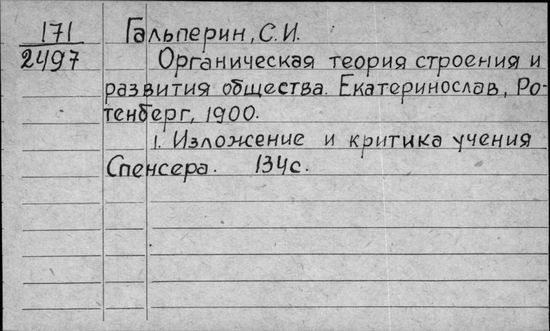 171
2497
Гальперин, С.И.
Органическая теория строения и
развития общества. Екатеринослав, Ро-
тенберг, 1900.
1. Изложение и критика учения
Спенсера. 134с.